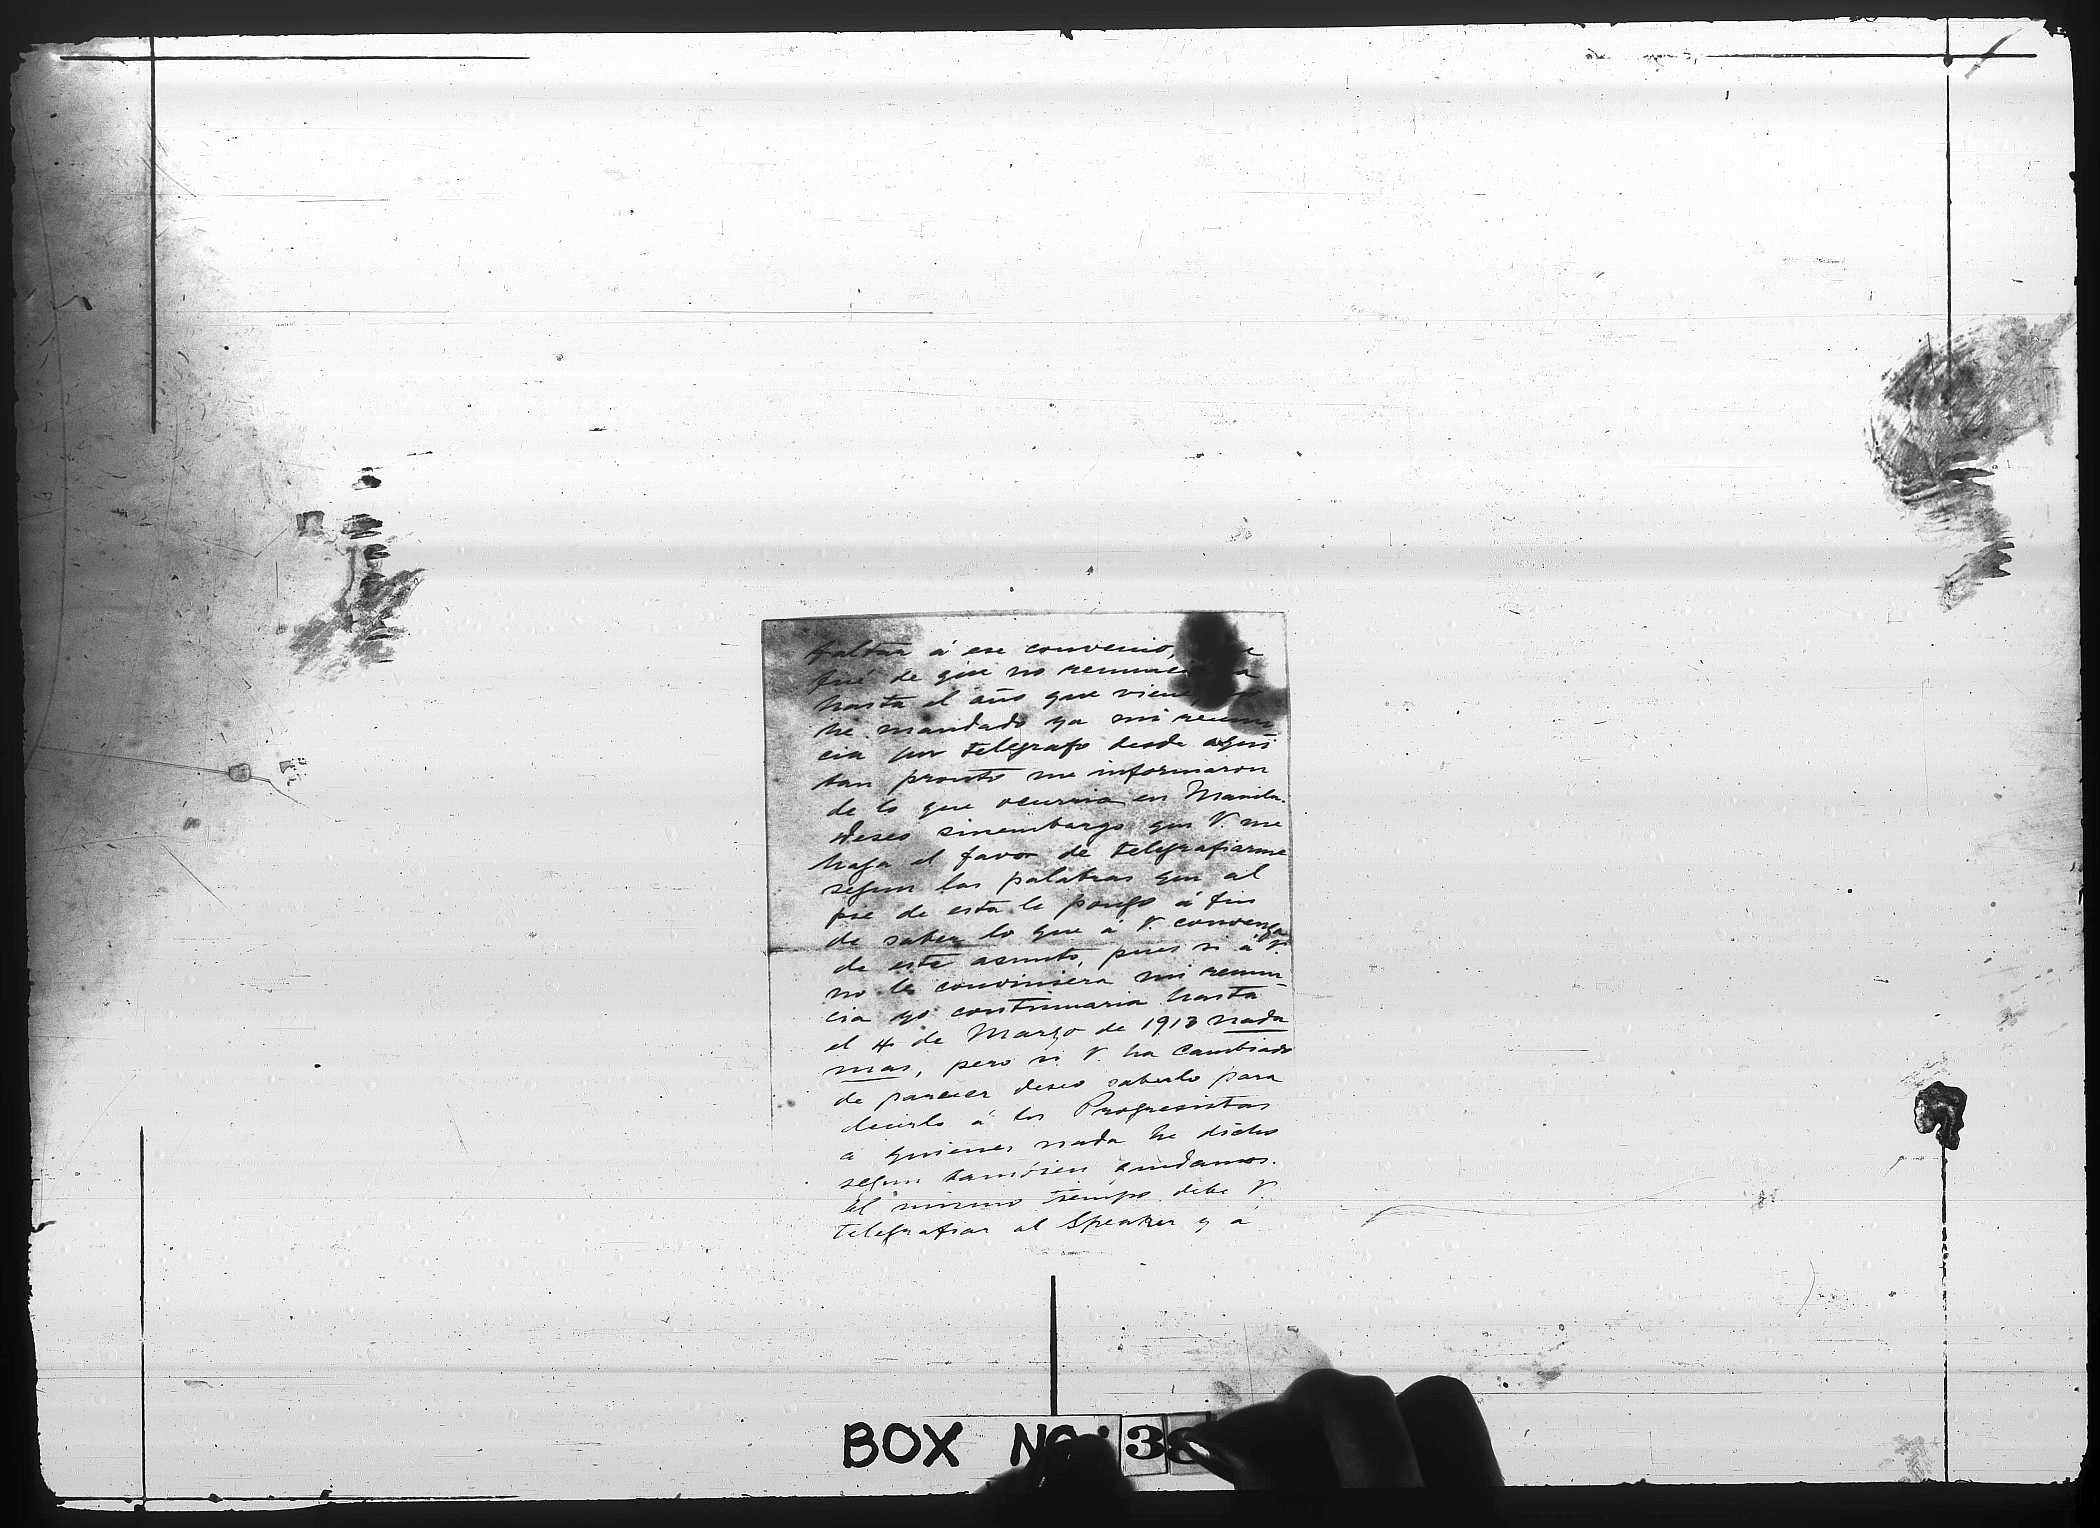 faltar á ese convenio,
fué de que no
hasta el año que viene,
he mandado ya mi renun
cia por telegrafo desde aqui
tan pronto me informaron
de lo que ocurria en Manila.
Deseo sinembargo que V. me
haga el favor de telegrafiarme
segun las palabras que al
pie de esta le pongo á fin
de saber lo que á V. convenga
de este asunto, pues si á V.
no le conviniera mi renun-
cia yo continuaria hasta
el 4 de Marzo de 1913 nada
mas, pero si V. ha cambiado
de parecer deseo saberlo para
decirlo á los Progresistas
a quienes nada he dicho
segun tambien quedamos.
Al mismo tiempo debe V.
telegrafiar al Speaker y á
BOX NO. 38